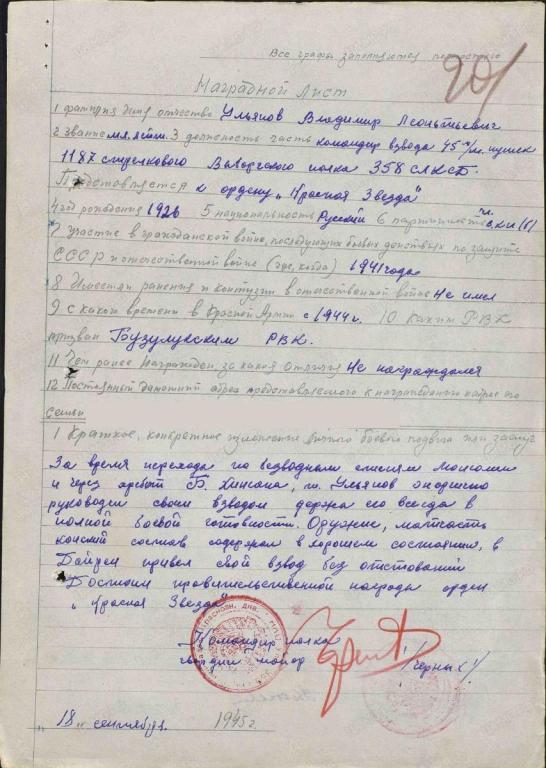 Все графы заполняются полностью
201
Наградной Лист
1 фамилия Имя отчество Ульянов Владимир Леонтьевич
2 звание мл. лейт. 3 должность часть командир взвода 45 м/м. пушек
1187 стрелкового Вологдского полка 358 СЛКСД.
Представляется к ордену „Красная Звезда"
4 год рождения 1926 5 национальность Русский 6 партийность чл. ВЛКСМ
7 участие в гражданской войне, последующих боевых действиях по защите
СССР и отечественной войне (где, когда) 1941 года
8 Имеет ли ранения и контузии в отечественной войне Не имел
9 с какого времени в Красной Армии с 1944 г. 10 Каким РВК
призван Бузулукским РВК.
11 Чем ранее награжден за какая отличия Не награждался
12 Постоянный домашний адрес представляемого к награждению и адрес его
семьи
1 Краткое, конкретное изложение личного боевого подвига или заслуг
За время перехода по безводным степям Монголии
и через хребет Б. Хинган, т. Ульянов
руководил своим взводом держа его всегда в
полной боевой готовности. Оружие, матчасть
конский состав содержал в хорошем состоянии, в
привел свой взвод без отставаний
Достоин правительственной награды орден
„Красная Звезда"
Командир полка
гвардии майор /Черных/
18 „ сентября 1945 г.